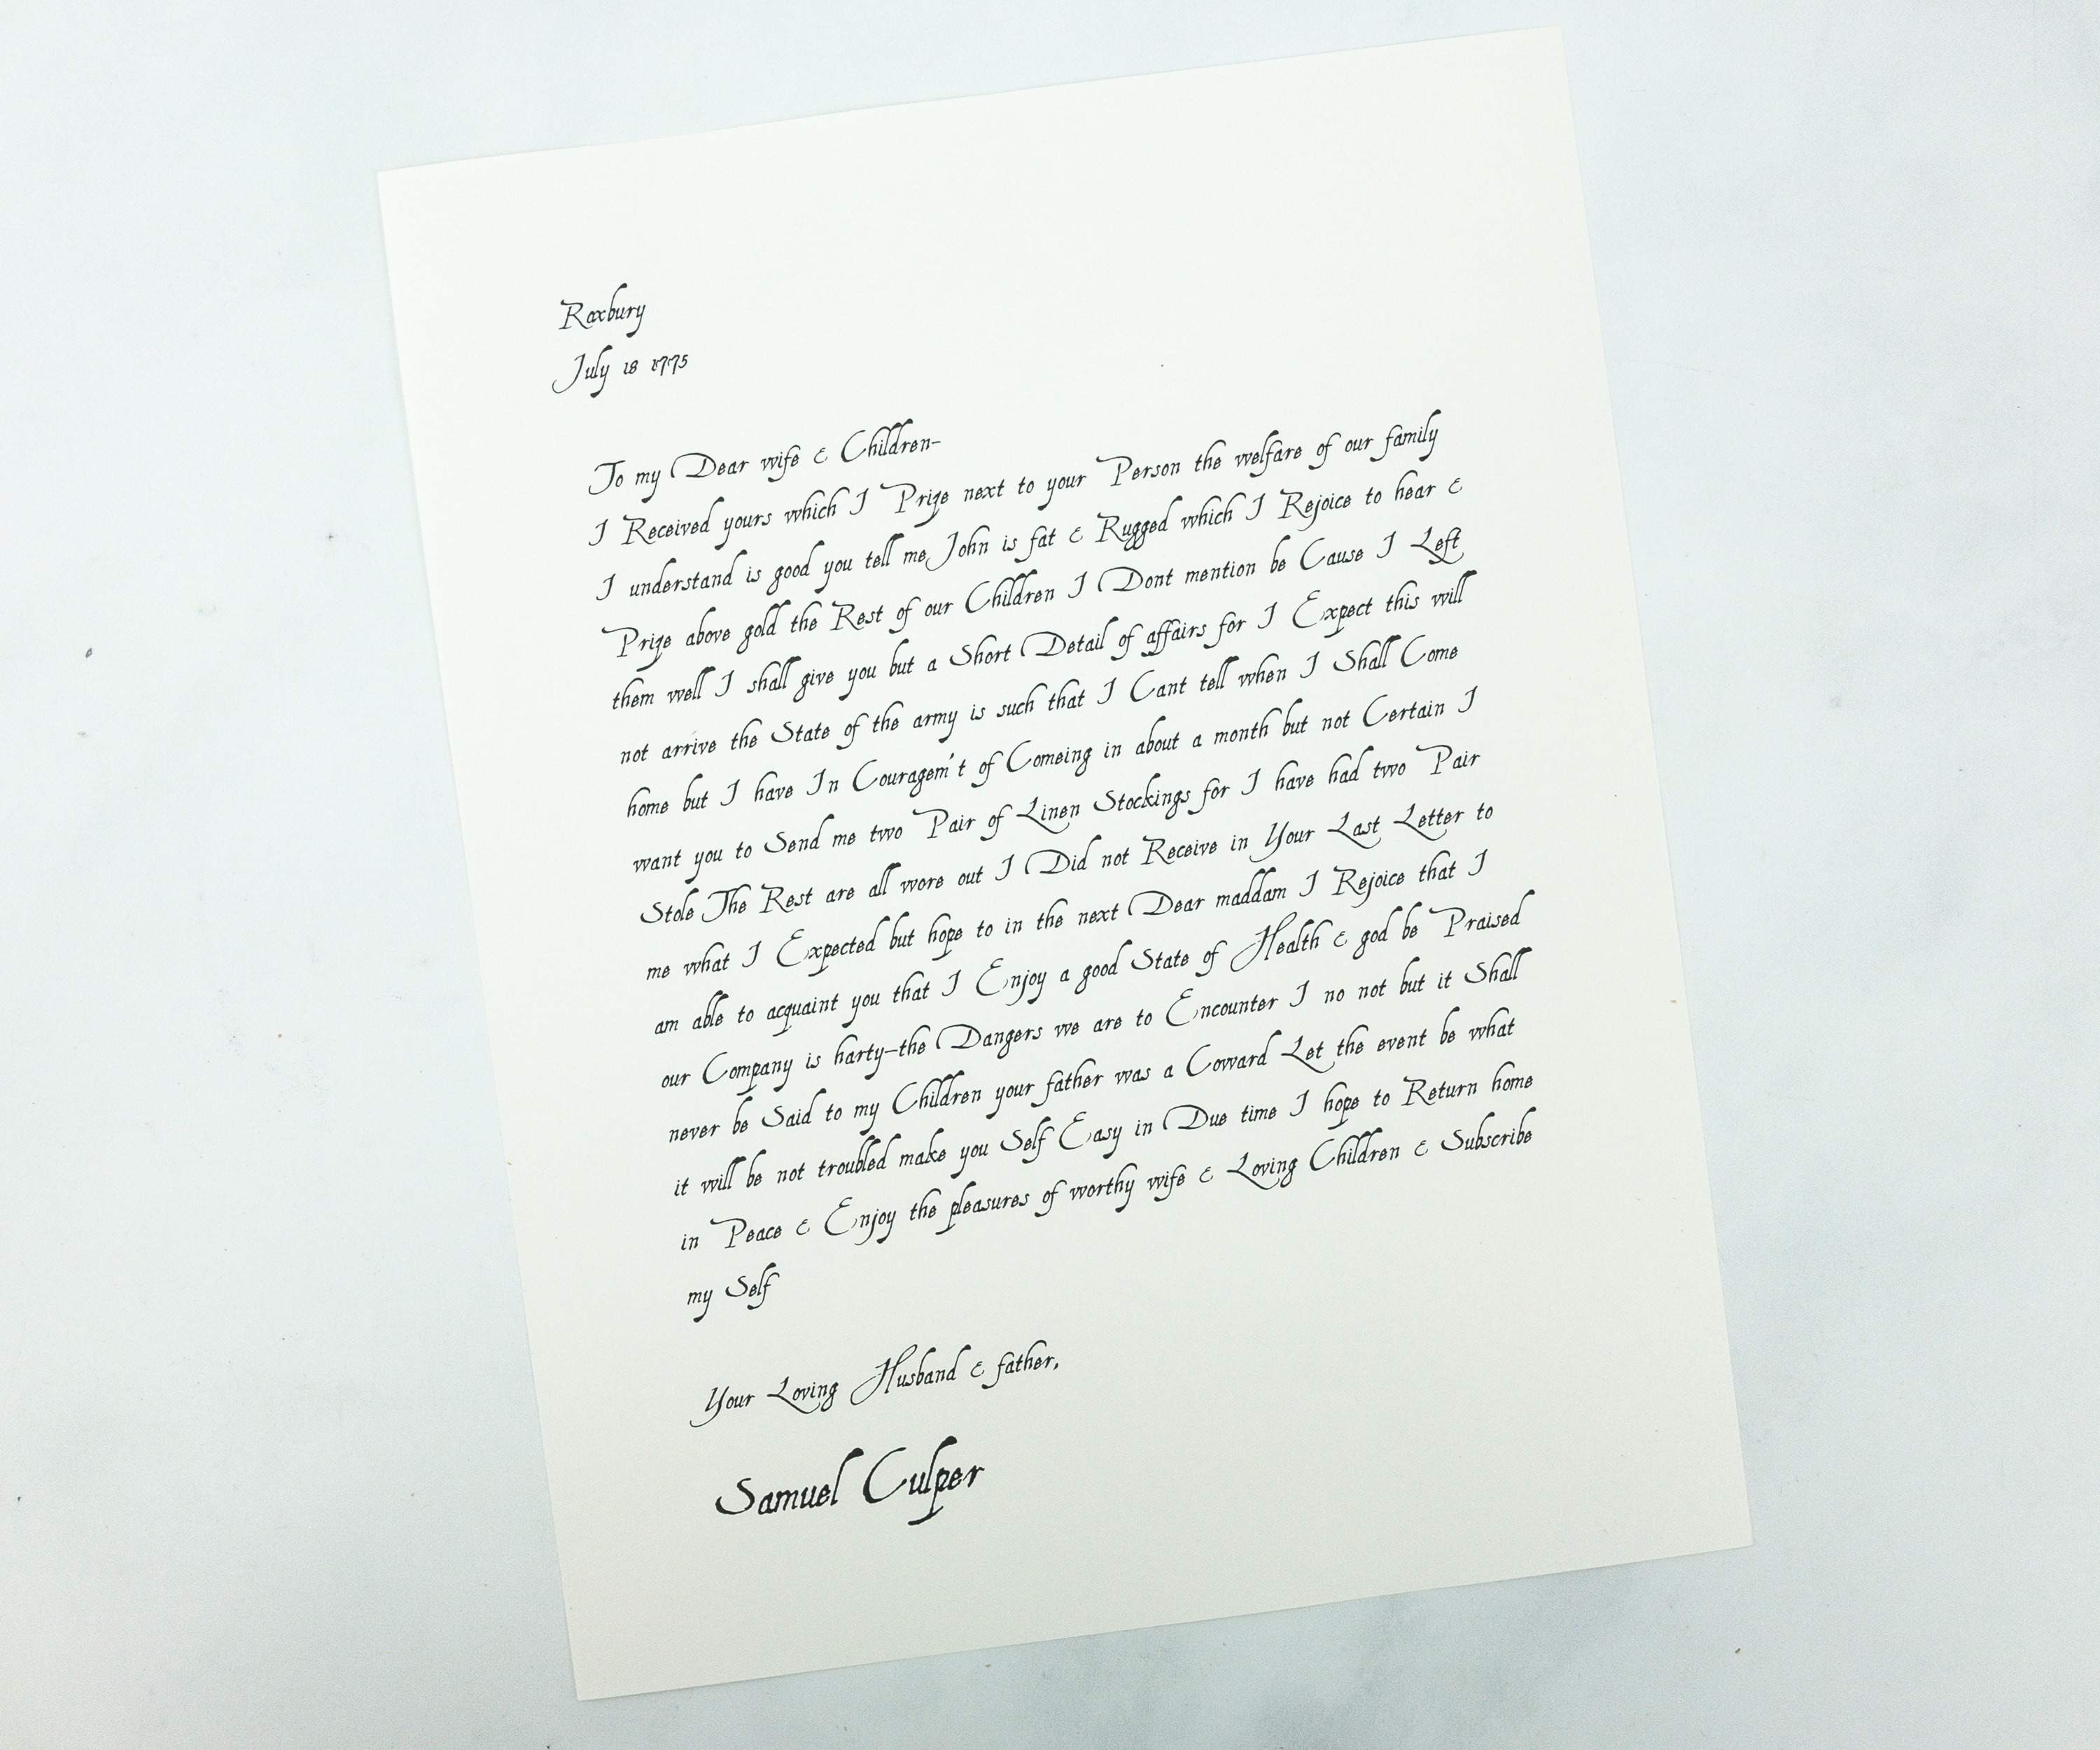 Roxbury
July 18 1775
To my Dear wife & Children-
I Received yours which I Prize next to your Person the welfare of our family
I understand is good you tell me John is fat & Rugged which I Rejoice to hear &
Prize above gold the Rest of our Children I Dont mention be Cause I Left
them well I shall give you but a Short Detail of affairs for I Expect this will
not arrive the State of the army is such that I Cant tell when I Shall Come
home but I have In Couragem't of Comeing in about a month but not Certain I
want you to Send me two Pair of Linen Stockings for I have had two Pair
Stole The Rest are all wore out I Did not Receive in Your Last Letter to
me what I Expected but hope to in the next Dear maddam I Rejoice that I
am able to acquaint you that I Enjoy a good State of Health & god be Praised
our Company is harty-the Dangers we are to Encounter I no not but it Shall
never be Said to my Children your father was a Coward Let the event be what
it will be not troubled make you Self Easy in Due time I hope to Return home
in Peace & Enjoy the pleasures of worthy wife & Loving Children & Subscribe
my Self
Your Loving Husband & father,
Samuel Culper